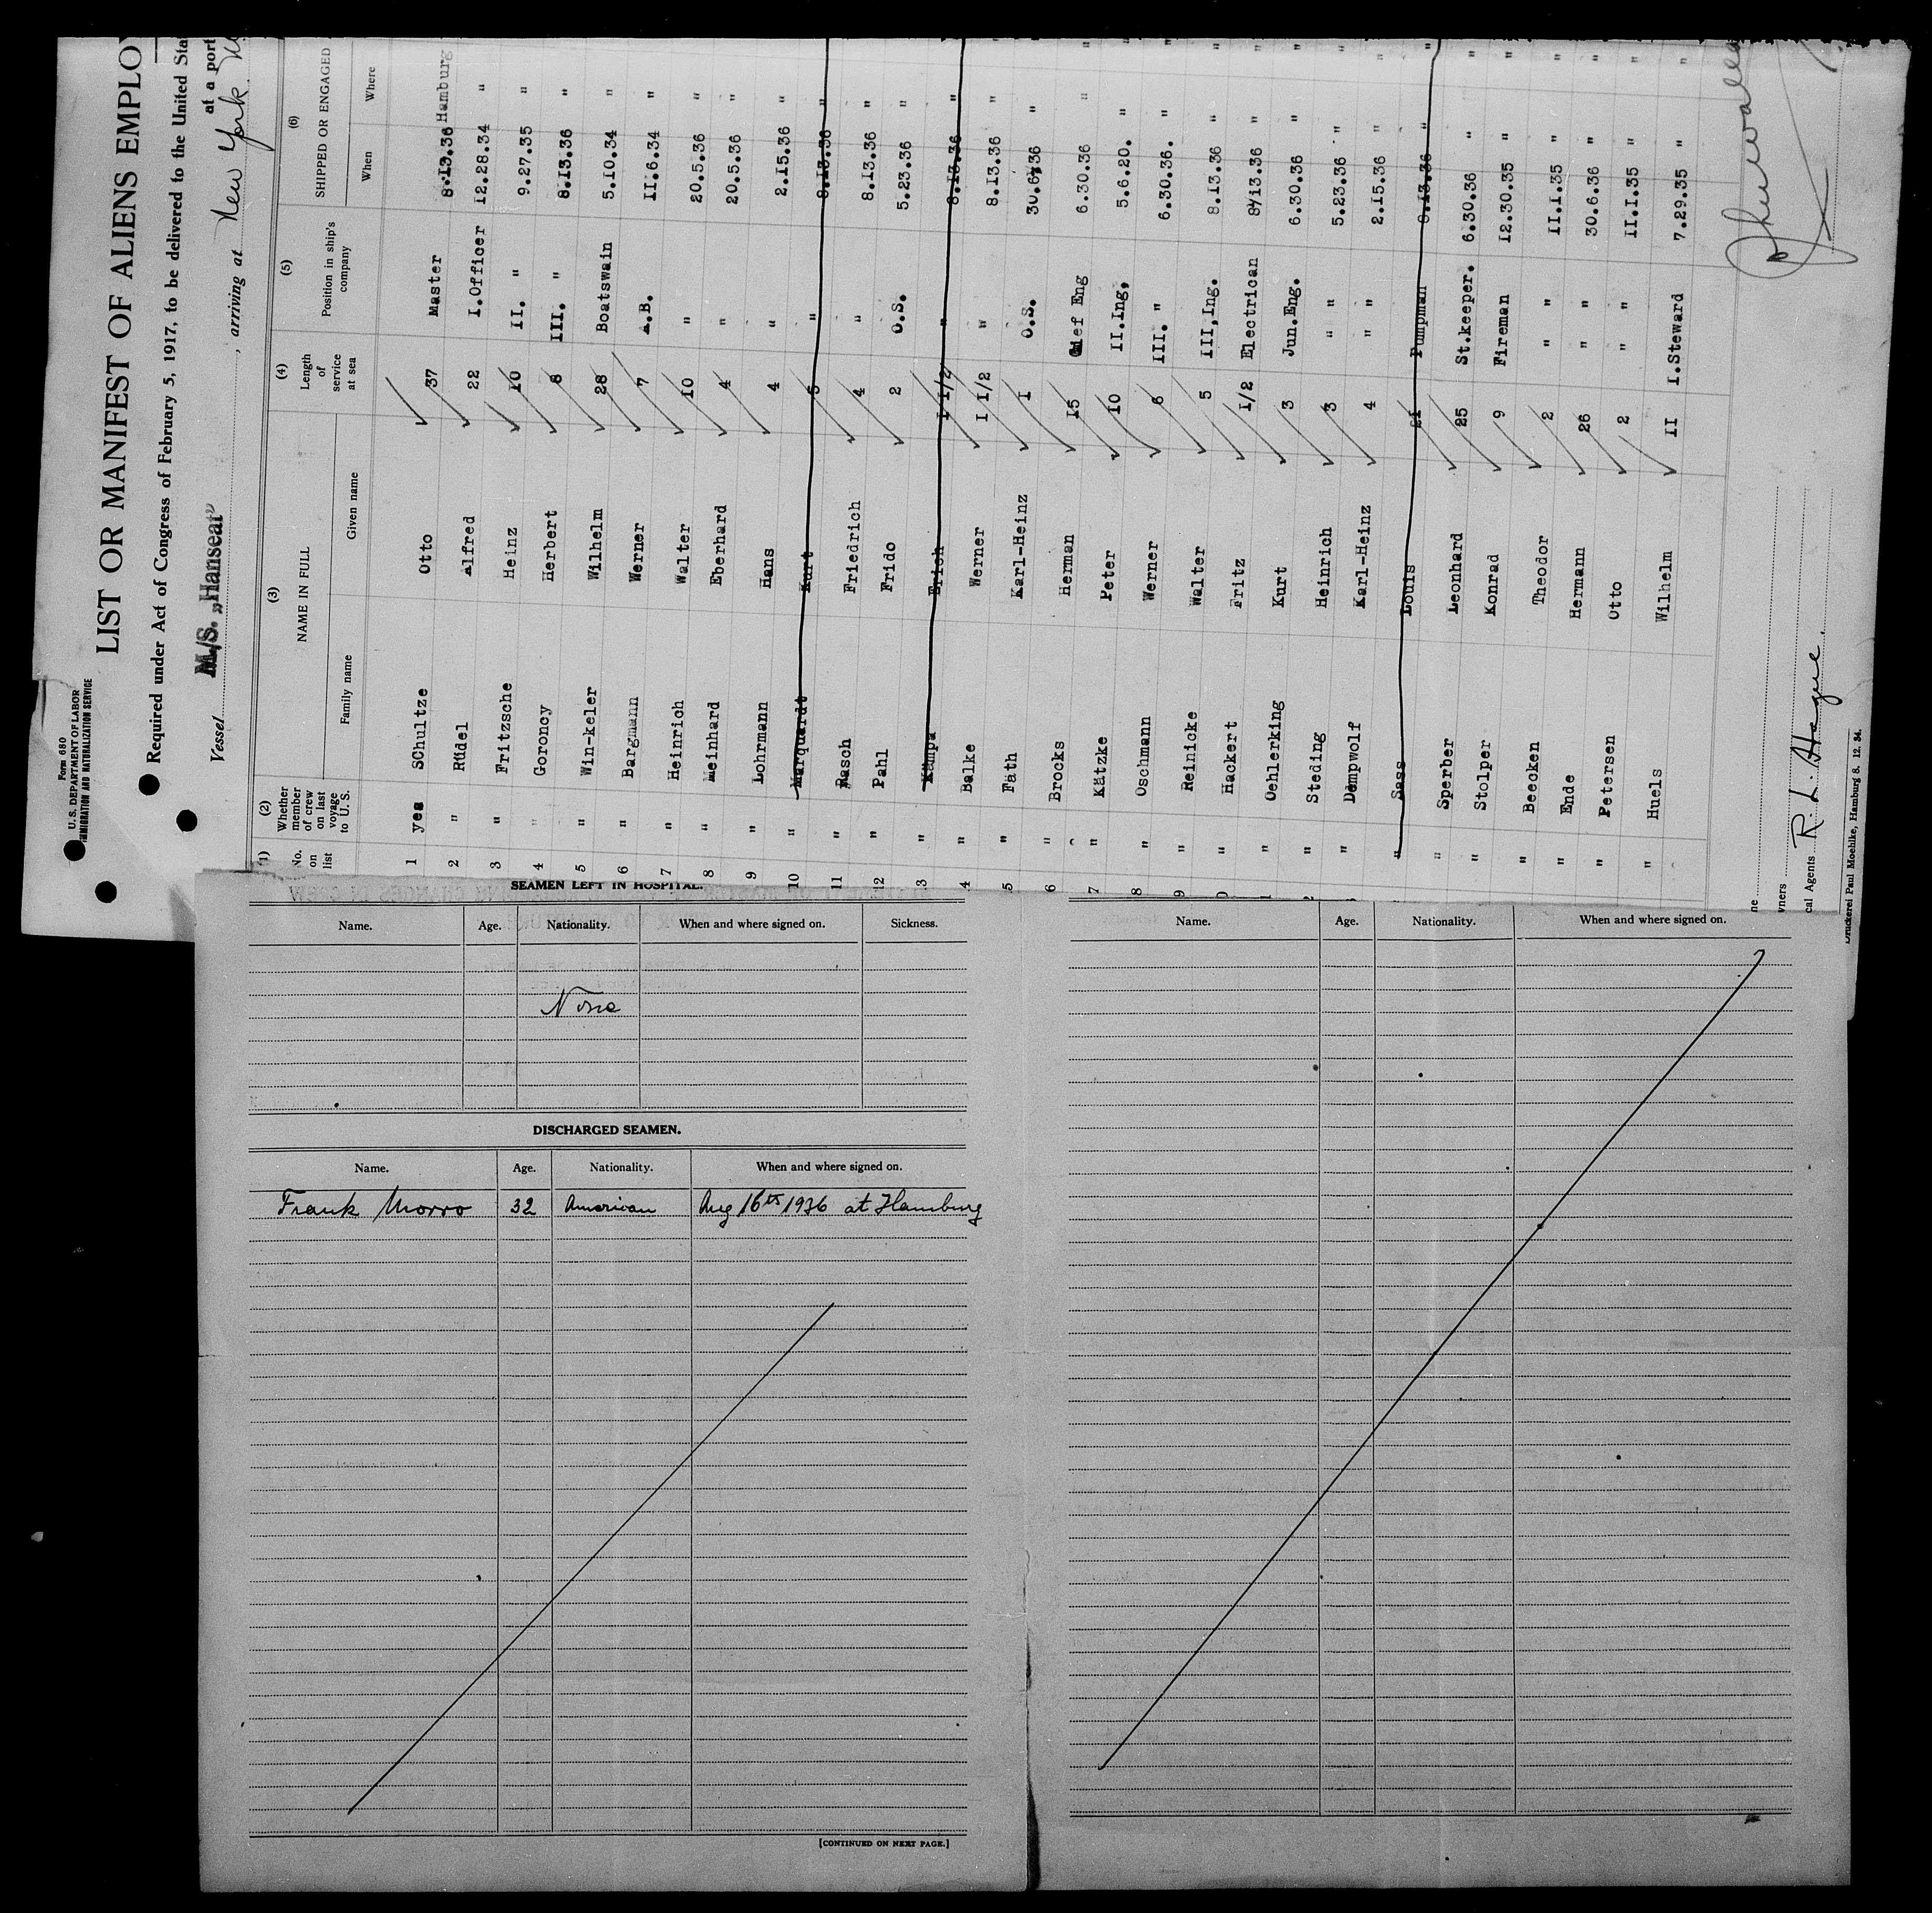 Form 680
U. S. DEPARTMENT OF LABOR
IMMIGRATION AND NATURALIZATION SERVICE
LIST OR MANIFEST OF ALIENS EMPLOY
Required under Act of Congress of February 5, 1917, to be delivered to the United Sta
at a port
Vessel M/S. „Hanseat" , arriving at New York
(1) (2) (3) (4) (5) (6)
No. on list Whether member of crew on last voyage to U. S. NAME IN FULL Length of service at sea Position in ship's company SHIPPED OR ENGAGED
Family name Given name When Where
1 yes SChultze Otto 37 Master 8.13.36 Hamburg
2 " Rüdel Alfred 22 I.Officer 12.28.34 "
3 " Fritzsche Heinz 10 II. " 9.27.35 "
4 " Goroncy Herbert 8 III. " 8.13.36 "
5 " Win-keler Wilhelm 28 Boatswain 5.10.34 "
6 " Bargmann Werner 7 A.B. II.6.34 "
7 " Heinrich Walter 10 " 20.5.36 "
8 " Meinhard Eberhard 4 " 20.5.36 "
9 " Lohrmann Hans 4 " 2.15.36 "
10 " Marquardt Kurt 5 " 8.13.36 "
11 " Rasch Friedrich 4 " 8.13.36 "
12 " Pahl Frido 2 O.S. 5.23.36 "
3 " Kämpa Erich 1 1/2 " 8.13.36 "
4 " Balke Werner 1 1/2 " 8.13.36 "
5 " Fäth Karl-Heinz I O.S. 30.6.36 "
6 " Brocks Herman 15 Chief Eng 6.30.36 "
7 " Kätzke Peter 10 II.Ing, 5.6.20. "
8 " Oschmann Werner 6 III. " 6.30.36. "
9 " Reinicke Walter 5 III,Ing. 8.13.36 "
0 " Hackert Fritz 1/2 Electrican 8/13.36 "
1 " Oehlerking Kurt 3 Jun.Eng. 6.30.36 "
" Steding Heinrich 3 " " 5.23.36 "
" Dempwolf Karl-Heinz 4 " " 2.15.36 "
" Sass Louis 21 Pumpman 8.13.36 "
" Sperber Leonhard 25 St.keeper. 6.30.36 "
" Stolper Konrad 9 Fireman 12.30.35 "
" Beecken Theodor 2 " " II.I.35 "
" Ende Hermann 26 " " 30.6.36 "
" Petersen Otto 2 " " II.I.35 "
" Huels Wilhelm II I.Steward 7.29.35 "
ne
wners
cal Agents R. L. Hague.
Druckerei Paul Moehlke, Hamburg 8. 12. 34.
SEAMEN LEFT IN HOSPITAL.
Name. Age. Nationality. When and where signed on. Sickness.
None
DISCHARGED SEAMEN.
Name. Age. Nationality. When and where signed on.
Frank Morro 32 American Aug 16th 1936 at Hamburg
[CONTINUED ON NEXT PAGE.]
Name. Age. Nationality. When and where signed on.